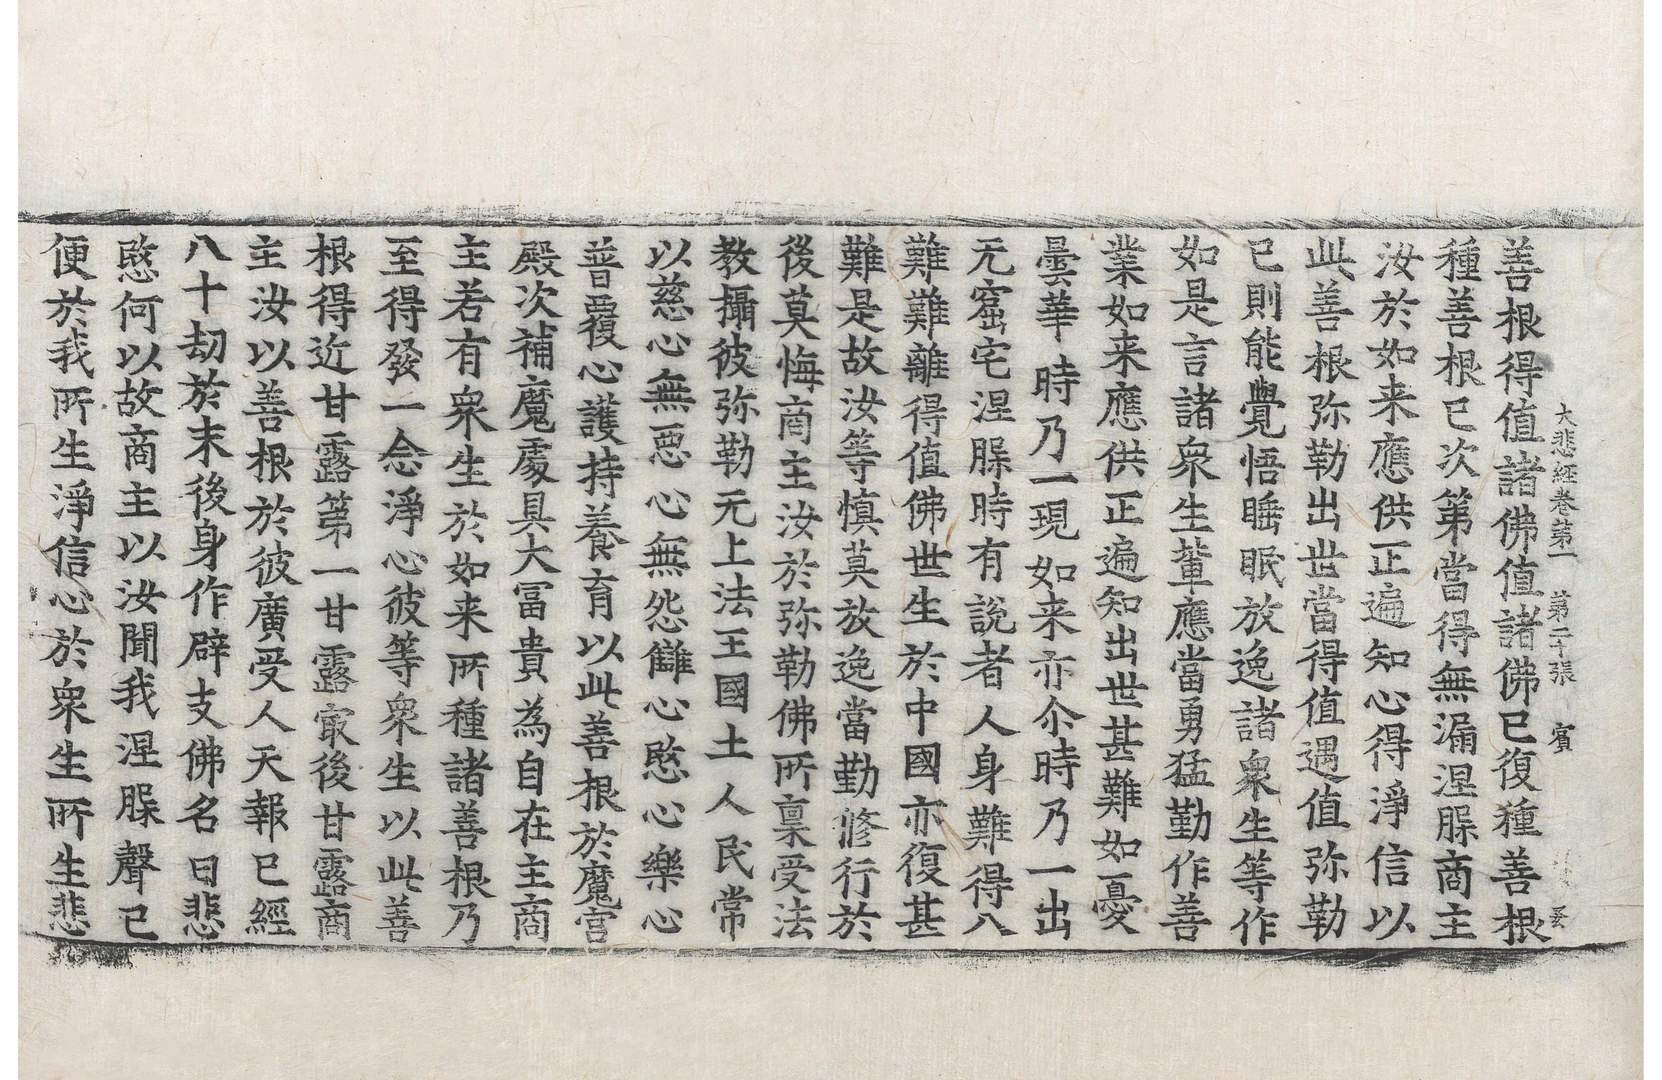 大悲經卷第一 第二十張 賓
善根得值諸佛值諸佛已復種善根
種善根已次第當得無漏涅槃商主
汝於如来應供正遍知心得淨信以
此善根弥勒出世當得值遇值弥勒
已則能覺悟睡眠放逸諸衆生等作
如是言諸衆生輩應當勇猛勤作善
業如来應供正遍知出世甚難如憂
曇華時乃一現如来亦尒時乃一出
无窟宅涅槃時有說者人身難得八
難難離得值佛世生於中國亦復甚
難是故汝等慎莫放逸當勤修行於
後莫悔商主汝於弥勒佛所禀受法
教攝彼弥勒无上法王國土人民常
以慈心無惡心無怨讎心愍心樂心
普覆心護持養育以此善根於魔宮
殿次補魔處具大冨貴為自在主商
主若有衆生於如来所種諸善根乃
至得發一念淨心彼等衆生以此善
根得近甘露第一甘露冣後甘露商
主汝以善根於彼廣受人天報已經
八十劫於末後身作辟支佛名曰悲
愍何以故商主以汝聞我涅槃聲已
便於我所生淨信心於衆生所生悲